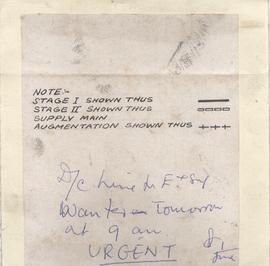 NOTE:-
STAGE I SHOWN THUS
STAGE II SHOWN THUS
SUPPLY MAIN
AUGMENTATION SHOWN THUS
D/c line
Wanted Tomorrow
at 9 am
URGENT